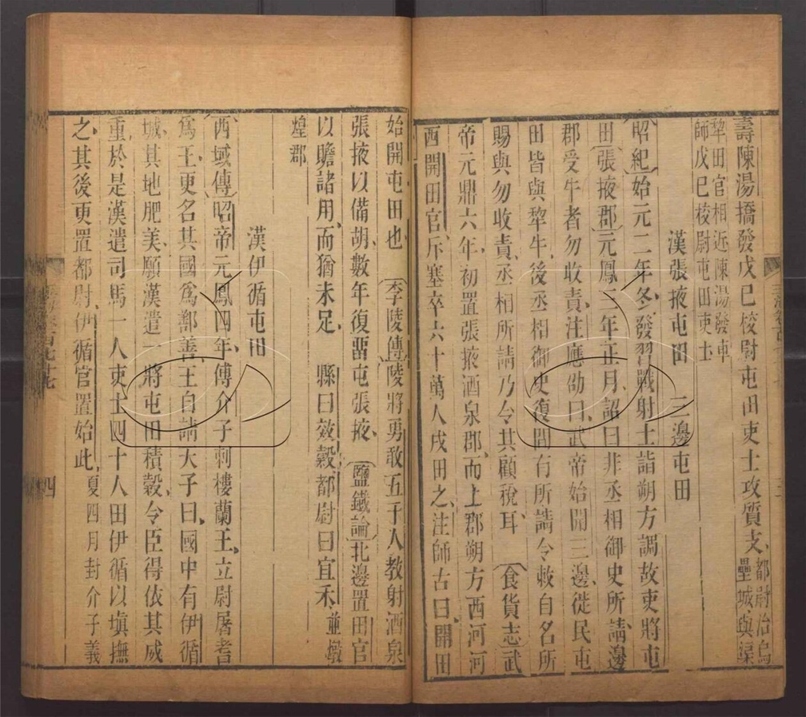 壽陳湯撟發戊己校尉屯田吏士攻質支都尉治烏
壘城與渠
犂田官相近陳湯發車
師戊己校尉屯田吏士
漢張掖屯田 三邊屯田
昭紀始元二年冬發習戰射士詣朔方調故吏將屯
田張掖郡元鳳三年正月詔曰非丞相御史所請邊
郡受牛者勿收責注應劭曰武帝始開三邊徙民屯
田皆與犂牛後丞相御史復閒有所請令敕自名所
賜與勿收責丞相所請乃令其顧稅耳 食貨志武
帝元鼎六年初置張掖酒泉郡而上郡朔方西河河
西開田官斥塞卒六十萬人戍田之注師古曰開田
始開屯田也 李陵傳陵將勇敢五千人教射酒泉
張掖以備胡數年復畱屯張掖 鹽鐵論北邊置田官
以贍諸用而猶未足 縣曰效穀都尉曰宜禾並燉
煌郡
漢伊循屯田
西域傳昭帝元鳳四年傅介子刺樓蘭王立尉屠耆
爲王更名其國爲鄯善王自請天子曰國中有伊循
城其地肥美願漢遣一將屯田積穀令臣得依其威
重於是漢遣司馬一人吏士四十人田伊循以塡撫
之其後更置都尉伊循官置始此夏四月封介子義
四